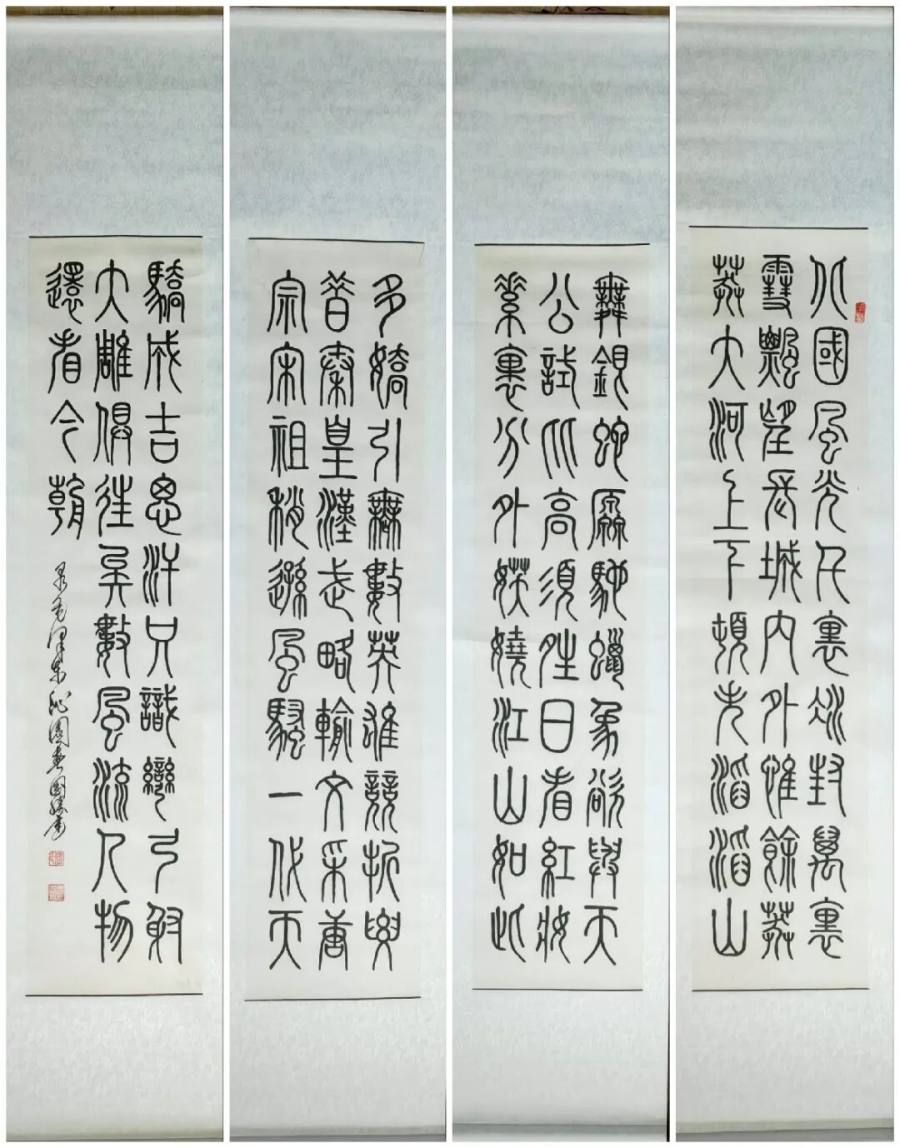 北國風光千裏冰封萬裏
雪飄望長城內外惟餘莽
莽大河上下頓失滔滔山
舞銀蛇原馳蠟象欲與天
公試比高須晴日看紅妝
素裹分外妖嬈江山如此
多嬌引無數英雄競折腰
昔秦皇漢武略輸文采唐
宗宋祖稍遜風騷一代天
驕成吉思汗只識彎弓射
大雕俱往矣數風流人物
還看今朝
录毛泽东沁園春國勝書